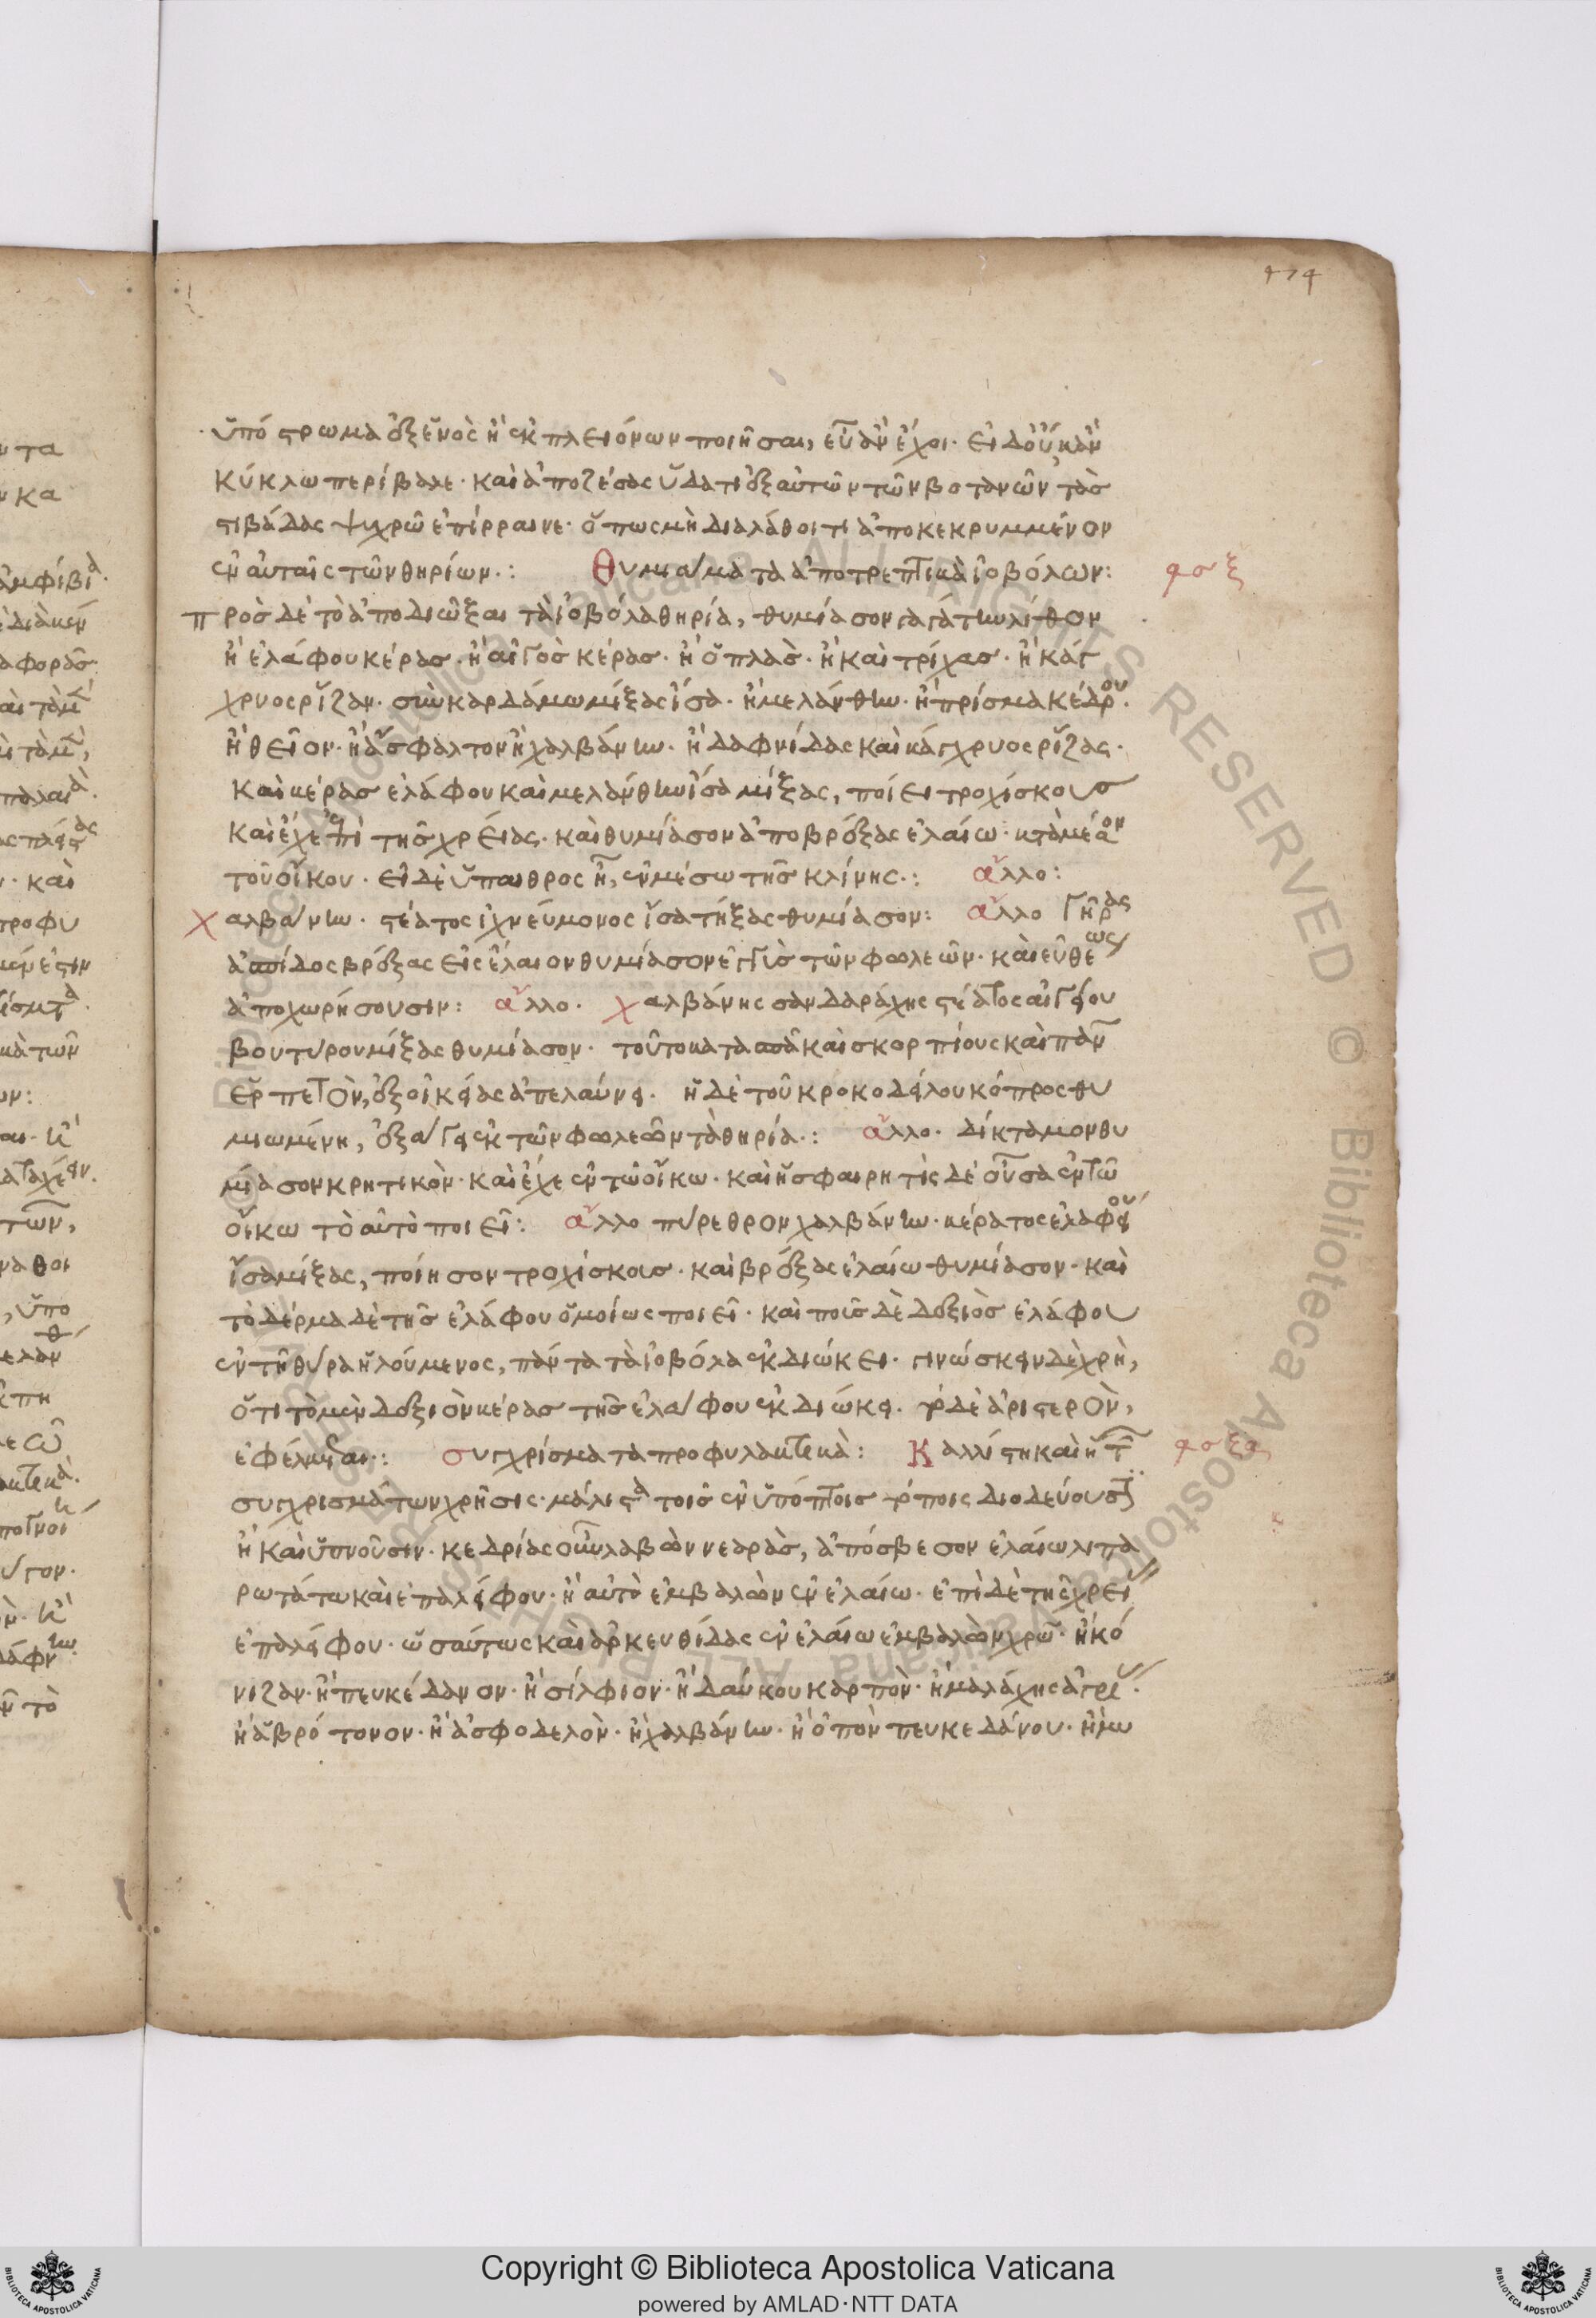 474
ὑπόστρωμα ἐξ ἑνὸς ἢ ἐκ πλειόνων ποιῆσαι, εὖ ἂν ἔχοι· εἰ δ' οὖν κἂν
κύκλω περίβαλε· καὶ ἀποζέσας ὕδατι ἐξ αὐτῶν τῶν βοτανῶν, τὰς
στιβάδας ψυχρῶ ἐπίρραινε· ὅπως μὴ διαλάθοι τι ἀποκεκρυμμένον
ἐν αὐταῖς τῶν θηρίων·: Θυμιάματα ἀποτρεπτικὰ ἰοβόλων: φσξ
πρὸς δὲ τὸ ἀποδιῶξαι τὰ ἰοβόλα θηρία, θυμίασον γαγάτην λίθον
ἢ ἐλάφου κέρας· ἢ αἰγὸς κέρας· ἢ ὁπλὰς· ἢ καὶ τρίχας· ἢ κάγ
χρυος ῥίζαν· σὺν καρδάμω μίξας ἴσα· ἢ μελάνθιον· ἢ πρίσμα κέδρου·
ἢ θεῖον· ἢ ἄσφαλτον ἢ χαλβάνην· ἢ δαφνίδας καὶ κάγχρυος ῥίζας·
καὶ κέρας ἐλάφου καὶ μελάνθιον ἴσα μίξας, ποίει τροχίσκους
καὶ ἔχε ἐπὶ τῆς χρείας· καὶ θυμίασον ἀποβρέξας ἐλαίω· κατὰ μέσον
τοῦ οἴκου· εἰ δὲ ὕπαιθρος ἦ, ἐν μέσω τῆς κλίνης·: ἄλλο:
χαλβάνην· στέατος ἰχνεύμονος ἴσα τήξας θυμίασον: ἄλλο γῆρας
ἀσπίδος βρέξας εἰς ἔλαιον θυμίασον ἐγγὺς τῶν φωλεῶν· καὶ εὐθέως
ἀποχωρήσουσιν: ἄλλο· χαλβάνης σανδαράχης στέατος αἰγείου
βουτύρου μίξας θυμίασον· τοῦτο κατὰ πᾶ καὶ σκορπίους καὶ πᾶν
ἑρπετὸν, ἐξ οἰκείας ἀπελαύνει· ἡ δὲ τοῦ κροκοδείλου κόπρος θυ
μιωμένη, ἐξάγει ἐκ τῶν φωλεῶν τὰ θηρία·: ἄλλο· δίκταμον θυ
μίασον κρητικὸν· καὶ ἔχε ἐν τῶ οἴκω· καὶ ἡ σφαιρητὶς δὲ οὖσα ἐν τῶ
οἴκω τὸ αὐτὸ ποιεῖ: ἄλλο πύρεθρον χαλβάνην· κέρατος ἐλαφείου
ἴσα μίξας, ποίησον τροχίσκους· καὶ βρέξας ἐλαίω θυμίασον· καὶ
τὸ δέρμα δὲ τῆς ἐλάφου ὁμοίως ποιεῖ· καὶ ποῦς δὲ δεξιὸς ἐλάφου
ἐν τῆ θύρα ἡλούμενος, πάντα τὰ ἰοβόλα ἐκδιώκει· γινώσκειν δὲ χρὴ,
ὅτι τὸ μὲν δεξιὸν κέρας τῆς ἐλάφου ἐκδιώκει· τὸ δὲ ἀριστερὸν,
ἐφέλκεται·: συγχρίσματα προφυλακτικὰ: Καλλίστη καὶ ἡ τῶν φσξα
συγχρισμάτων χρῆσις· μάλιστα τοῖς ἐν ὑπόπτοις τόποις διοδεύουσιν
ἢ καὶ ὑπνοῦσιν· κεδρίας οὖν λαβὼν νεαρὰς, ἀπόσβεσον ἐλαίω λιπα
ρωτάτω καὶ ἐπαλείφου· ἢ αὐτὸ ἐμβαλὼν ἐν ἐλαίω· ἐπὶ δὲ τῆς χρείας
ἐπαλείφου· ὡσαύτως καὶ ἀρκευθίδας ἐν ἐλαίω ἐμβαλὼν χρῶ· ἢ κό
νιζαν· ἢ πευκέδανον· ἢ σίλφιον· ἢ δαύκου καρπὸν· ἢ μαλάχης ἀγρίας·
ἢ ἀβρότονον· ἢ ἀσφοδελὸν· ἢ χαλβάνην· ἢ ὀπὸν πευκεδάνου· ἢ μω
Copyright © Biblioteca Apostolica Vaticana
powered by AMLAD·NTT DATA